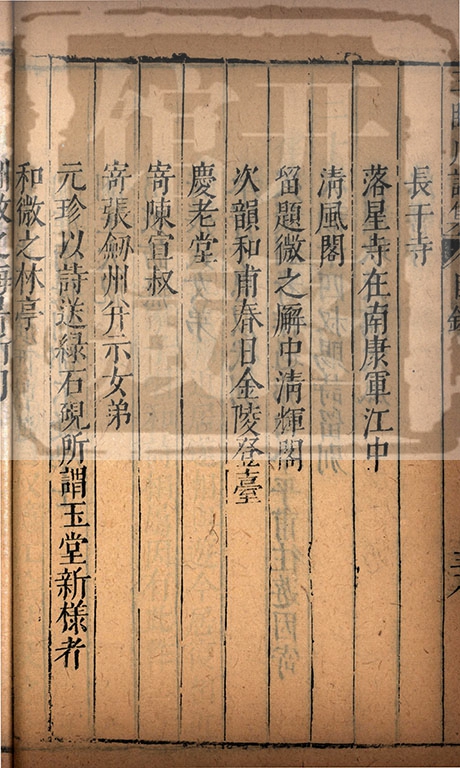 長干寺
落星寺在南康軍江中
清風閣
留題微之廨中清輝閣
次韻和甫春日金陵登臺
慶老堂
寄陳宣叔
寄張劒州幷示女弟
元珍以詩送綠石硯所謂玉堂新樣者
和微之林亭